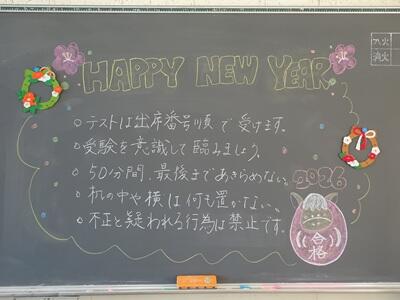 HAPPY NEW YEAR
○テストは出席番号順で受けます。
○受験を意識して臨みましょう。
○50分間、最後まであきらめない。
○机の中や横は何も置かない。
○不正と疑われる行為は禁止です。
2026
合格
入火
消火